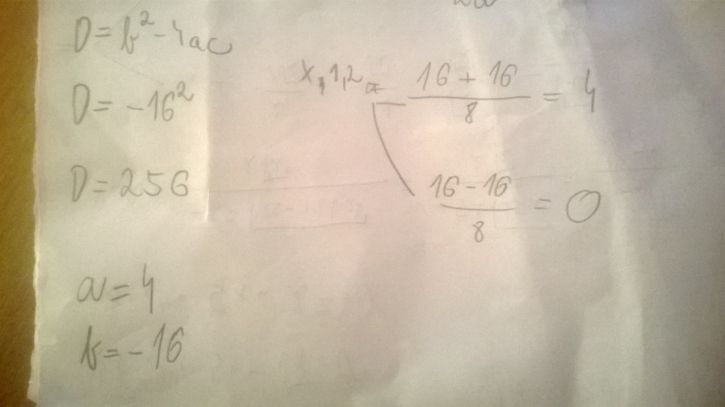 D = b² - 4ac
D = -16²
D = 256
a = 4
b = -16
x,1,2 = 16 + 16 / 8 = 4
16 - 16 / 8 = 0